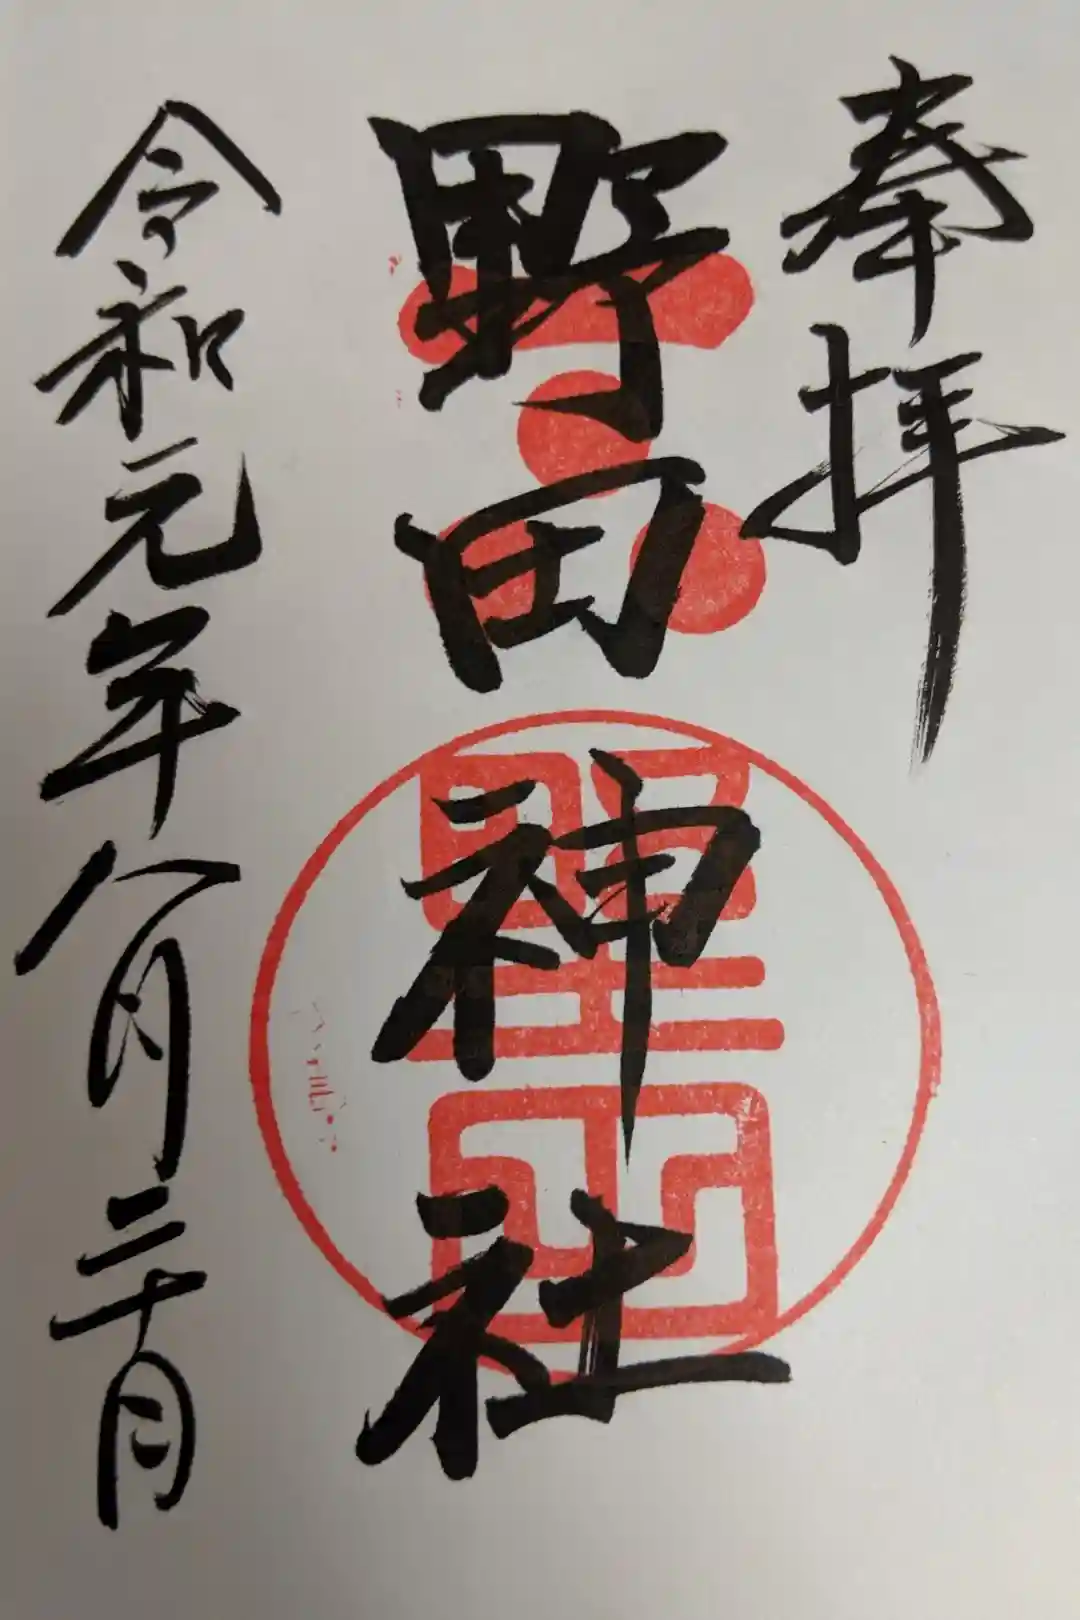 奉拝
野田神社
令和元年八月二十日